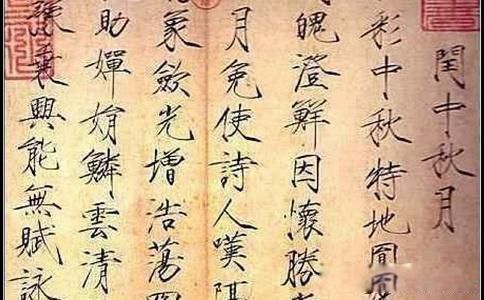 閏中秋月
彩中秋特地圓
魄澄鮮因懷勝
月免使詩人嘆隔
象斂光增浩蕩
助嬋娟鱗雲清
豫乘興能無賦詠